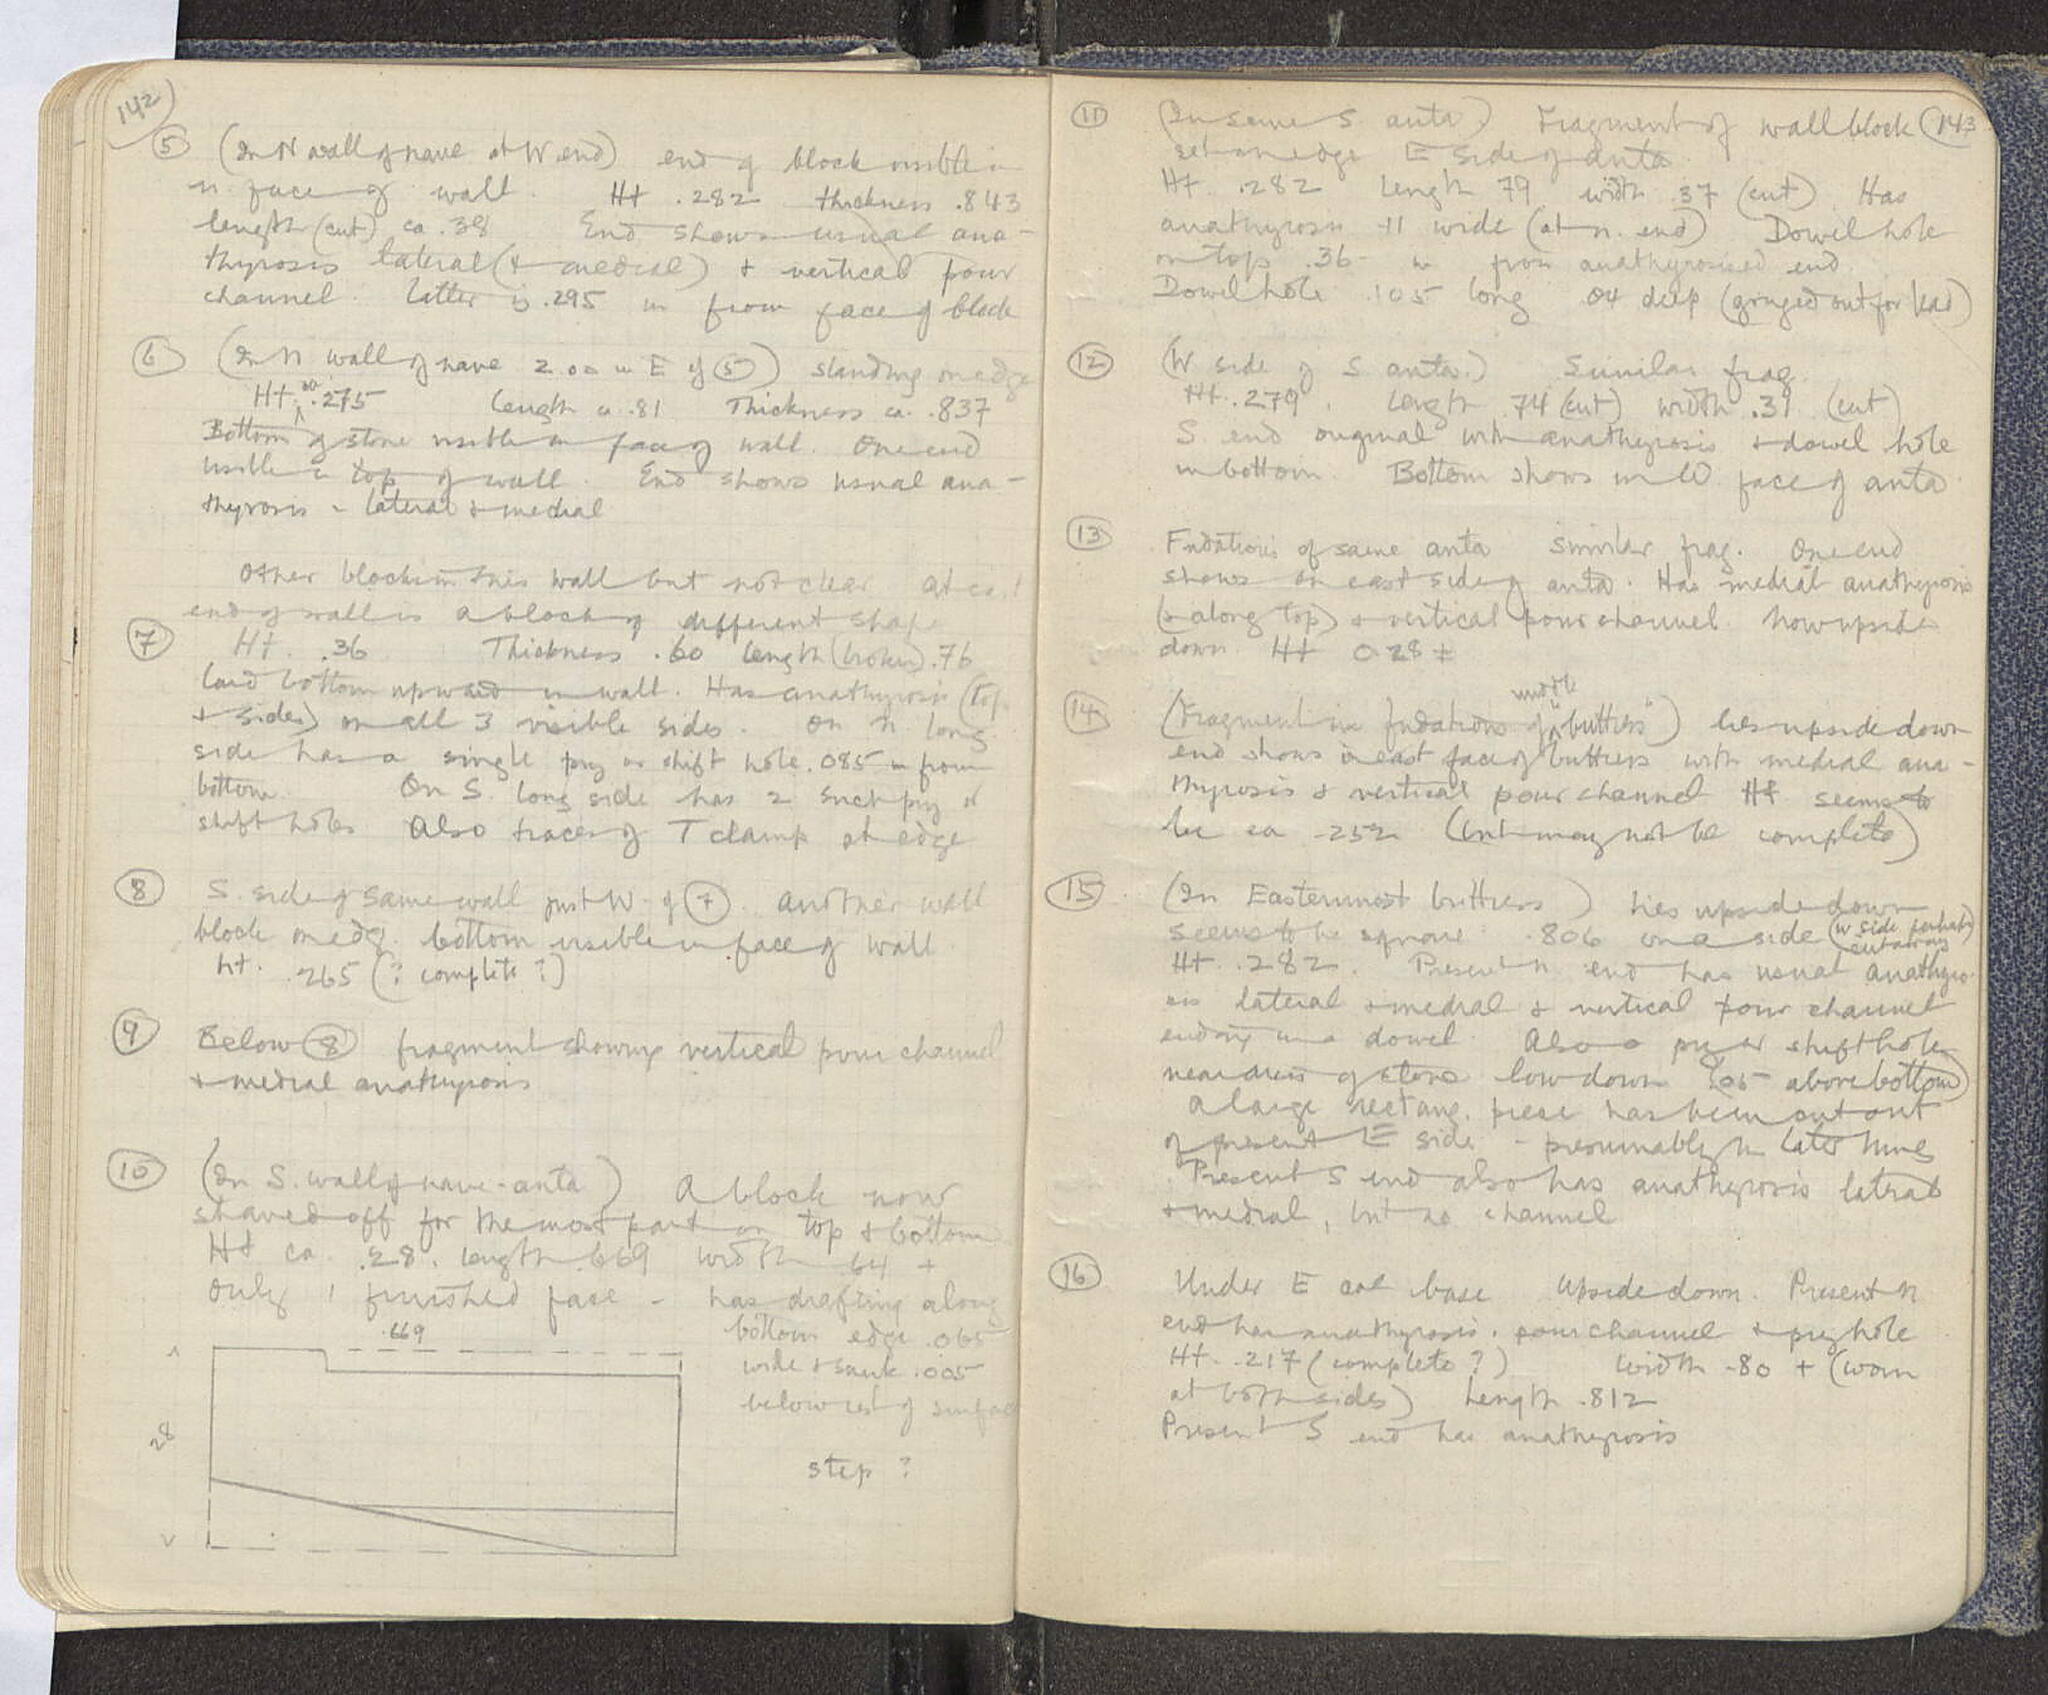 142
⑤ (In N wall of nave at W. end) end of block visible in
n. face of wall. Ht .282 thickness .843
length (cut) ca .38 End shows usual ana-
thyrosis lateral (& medial) & vertical pour
channel. Latter is .295 m from face of block
⑥ (In N wall of nave 2.00 m E of ⑤) standing on edge
Ht. .275 Length ca .81 Thickness ca. .837
Bottom of stone visible in face of wall. One end
visible in top of wall. End shows usual ana-
thyrosis - lateral & medial
Other blocks in this wall but not clear. At east
end of wall is a block of different shape
⑦ Ht. .36 Thickness .60 length (broken) .76
laid bottom upward in wall. Has anathyrosis (top
& sides) on all 3 visible sides. On N. long
side has a single pry or shift hole .085 m from
bottom. On S. long side has 2 such pry or
shift holes. Also traces of T clamp at edge
⑧ S. side of same wall just W. of ⑦. Another wall
block on edge. bottom visible in face of wall
ht. .265 (? complete ?)
⑨ Below ⑧ fragment showing vertical pour channel
& medial anathyrosis
⑩ (In S. wall of nave - anta) A block now
shaved off for the most part on top & bottom
Ht ca. .28. Length .669 width .64 +
Only 1 finished face - has drafting along
bottom edge .065
wide & sunk .005
below rest of surface
.669
28
step ?
143
⑪ (In same S. anta.) Fragment of wall block
set on edge E side of anta
Ht. .282 Length 79 width .37 (cut) Has
anathyrosis .11 wide (at n. end) Dowel hole
on top .36 m from anathyrosised end.
Dowel hole .105 long .04 deep (gouged out for lead)
⑫ (W side of S anta.) Similar frag.
Ht. .279. Length .74 (cut) width .31 (cut)
S. end original with anathyrosis & dowel hole
in bottom. Bottom shows in W. face of anta
⑬ Fndations of same anta similar frag. One end
shows on east side of anta. Has medial anathyrosis
(& along top) & vertical pour channel. Now upside
down Ht 0.28 ±
⑭ (Fragment in fndations of middle "buttress") lies upside down
end shows in east face of buttress with medial ana-
thyrosis & vertical pour channel Ht seems to
be ca .252 (but may not be complete)
⑮ (In Easternmost buttress) lies upside down
seems to be square .806 on a side (W side perhaps
cut away)
Ht. .282. Present N. end has usual anathyro-
sis lateral & medial & vertical pour channel
ending in a dowel. Also a pry or shift hole
near of stone low down (.05 above bottom)
A large rectang. piece has been cut out
of present E side - presumably in later times
Present S end also has anathyrosis lateral
& medial, but no channel
⑯ Under E col base upside down. Present N
end has anathyrosis, pour channel & pry hole
Ht. .217 (complete ?) Width .80 + (worn
at both sides) Length .812
Present S end has anathyrosis